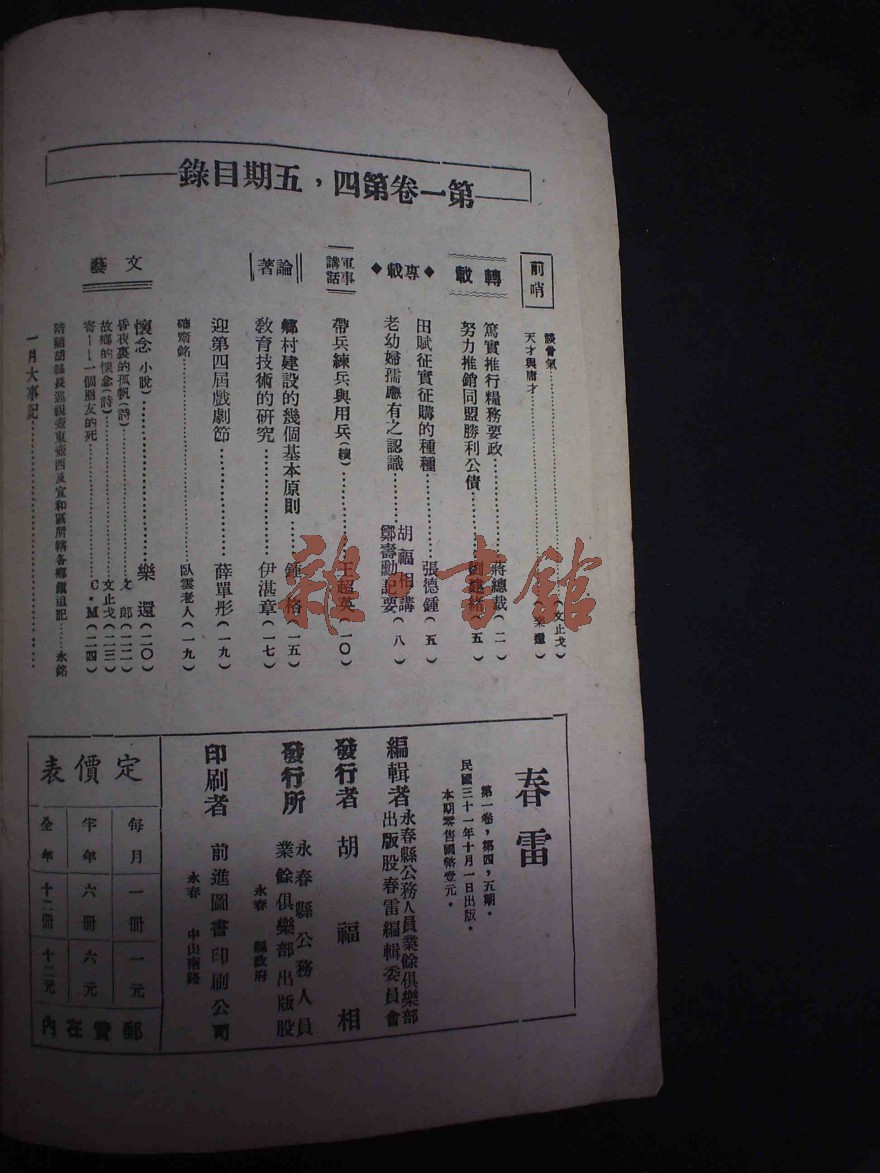 第一卷第四，五期目錄
前哨
談骨氣…………文止戈
天才與庸才…………
轉載
篤實推行糧務要政…………蔣總裁（二）
努力推銷同盟勝利公債…………劉建緒（五）
◆專載◆
田賦征實征購的種種…………張德鍾（五）
老幼婦孺應有之認識…………胡福相講 鄭壽勳記要（八）
軍事講話
帶兵練兵與用兵（續）…………王超英（一〇）
論著
鄉村建設的幾個基本原則…………鍾格（一五）
教育技術的研究…………伊湛章（一七）
迎第四屆戲劇節…………薛單彤（一九）
確齋銘…………臥雲老人（一九）
文藝
懷念 小說）…………樂還（二〇）
昏夜裏的孤帆（詩）…………文郎（二二）
故鄉的懷念（詩）…………文止戈（二三）
寄——一個朋友的死…………C·M（二四）
陪隨胡縣長巡視壺東壺西及宣和區所轄各鄉鎮追記……永銘
一月大事記…………
春雷
第一卷，第四，五期。
民國三十一年十月一日出版。
本期零售國幣壹元。
編輯者 永春縣公務人員業餘俱樂部
出版股春雷編輯委員會
發行者 胡福相
發行所 永春縣公務人員
業餘俱樂部出版股
永春 縣政府
印刷者 前進圖書印刷公司
永春 中山南路
定價表
每月 一冊 一元
半年 六冊 六元
全年 十二冊 十二元
郵費在內
雜·書館